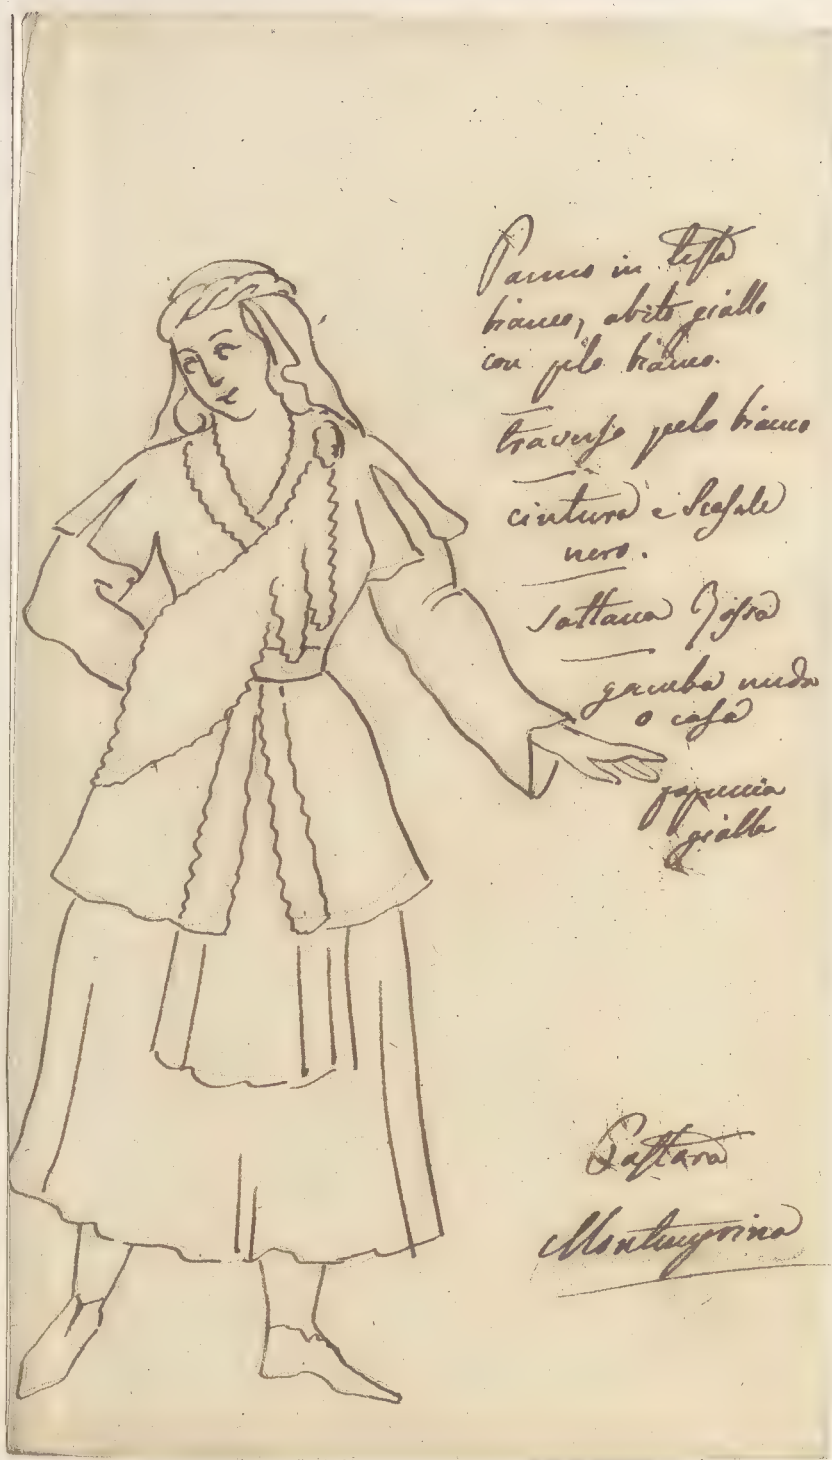 Panno in testa
bianco, abito giallo
con pelo bianco.
traverso pelo bianco
cintura e
nero.
sottana Rossa
gamba nuda
o casa
papuccia
gialla
Pastara
Montenegrina